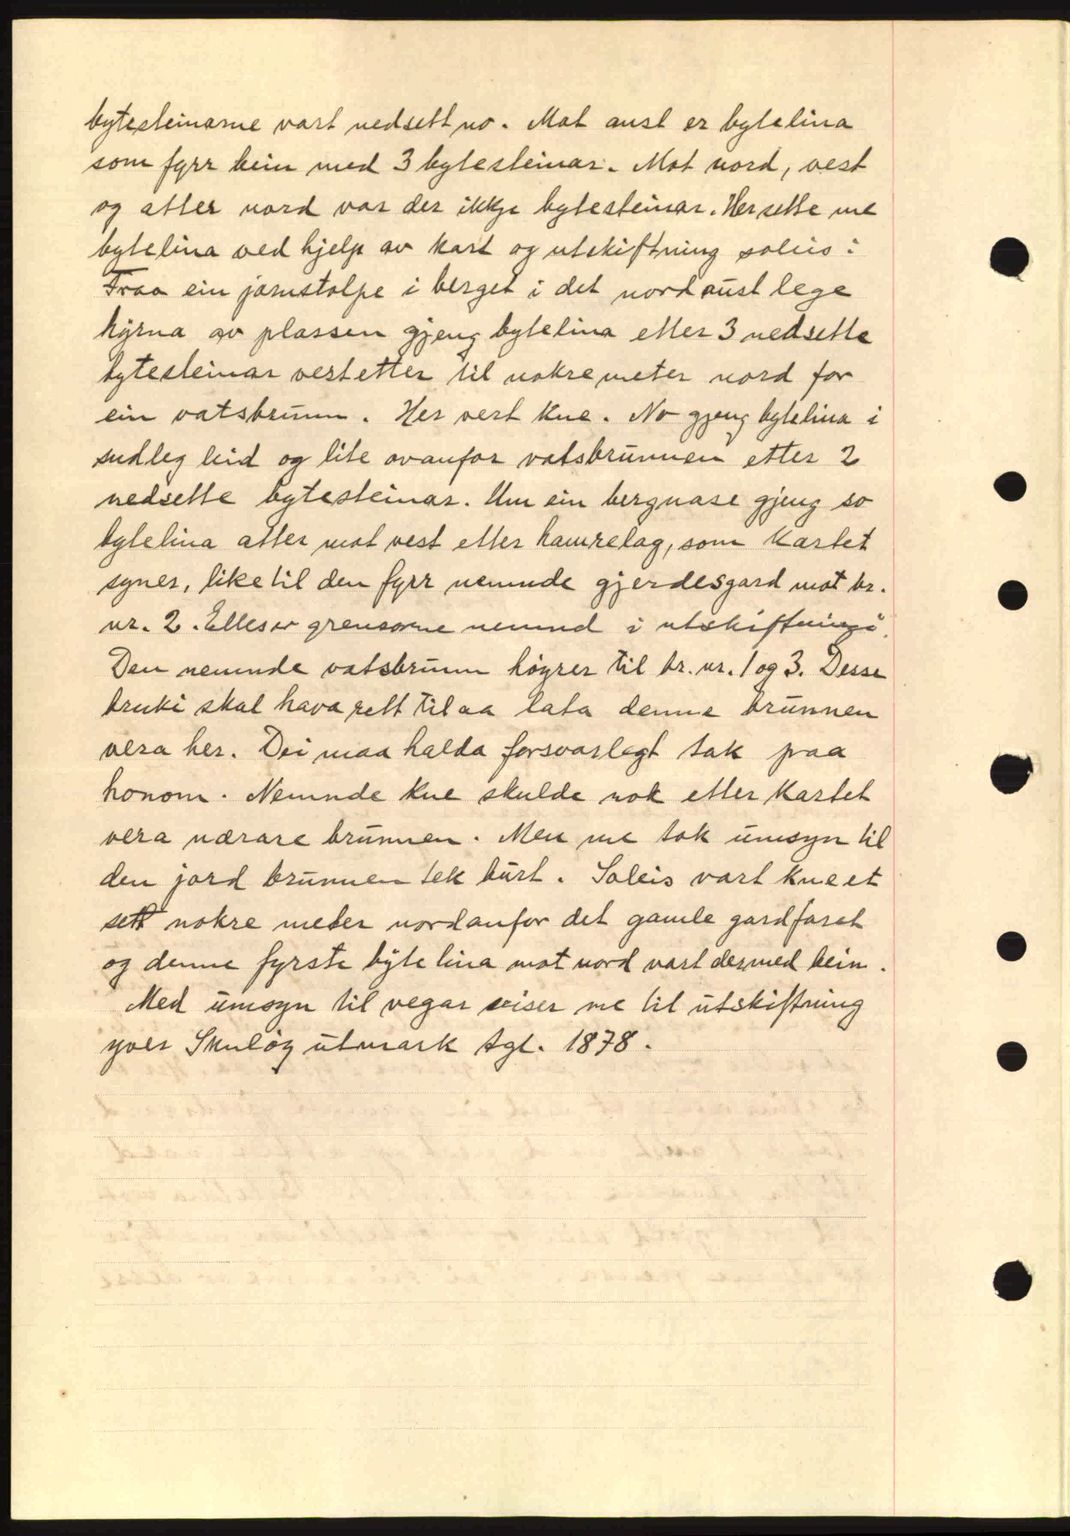 bytesteinarne vart nedsett no. Mot aust er bytelina
som fyrr bein med 3 bytesteinar. Mot nord, vest
og atter nord var der ikkje bytesteinar. Her sette me
bytelina ved hjelp av kart og utskiftning soleis:
Fraa ein jarnstolpe i berget i det nordaustlege
hyrna av plassen gjeng bytelina etter 3 nedsette
bytesteinar vestetter til nokre meter nord for
ein vatsbrunn. Her vert kne. No gjeng bytelina i
sudleg leid og lite ovanfor vatsbrunnen etter 2
nedsette bytesteinar. Um ein bergnase gjeng so
bytelina atter mot vest etter hamrelag, som kartet
syner, like til den fyrr nemnde gjerdesgard mot br.
nr. 2. Elles er grensorne nemnd i utskiftningi.
Den nemnde vatsbrunn høyrer til br. nr. 1 og 3. Desse
bruki skal hava rett til aa lata denne brunnen
vera her. Dei maa halda forsvarlegt tak paa
honom. Nemnde kne skulde nok etter kartet
vera nærare brunnen. Men me tok umsyn til
den jord brunnen tek burt. Soleis vart kneet
sett nokre meter nordanfor det gamle gardfaret
og denne fyrste bytelina mot nord vart dermed bein.
Med umsyn til vegar viser me til utskiftning
yver Skuløy utmark tgl. 1878.